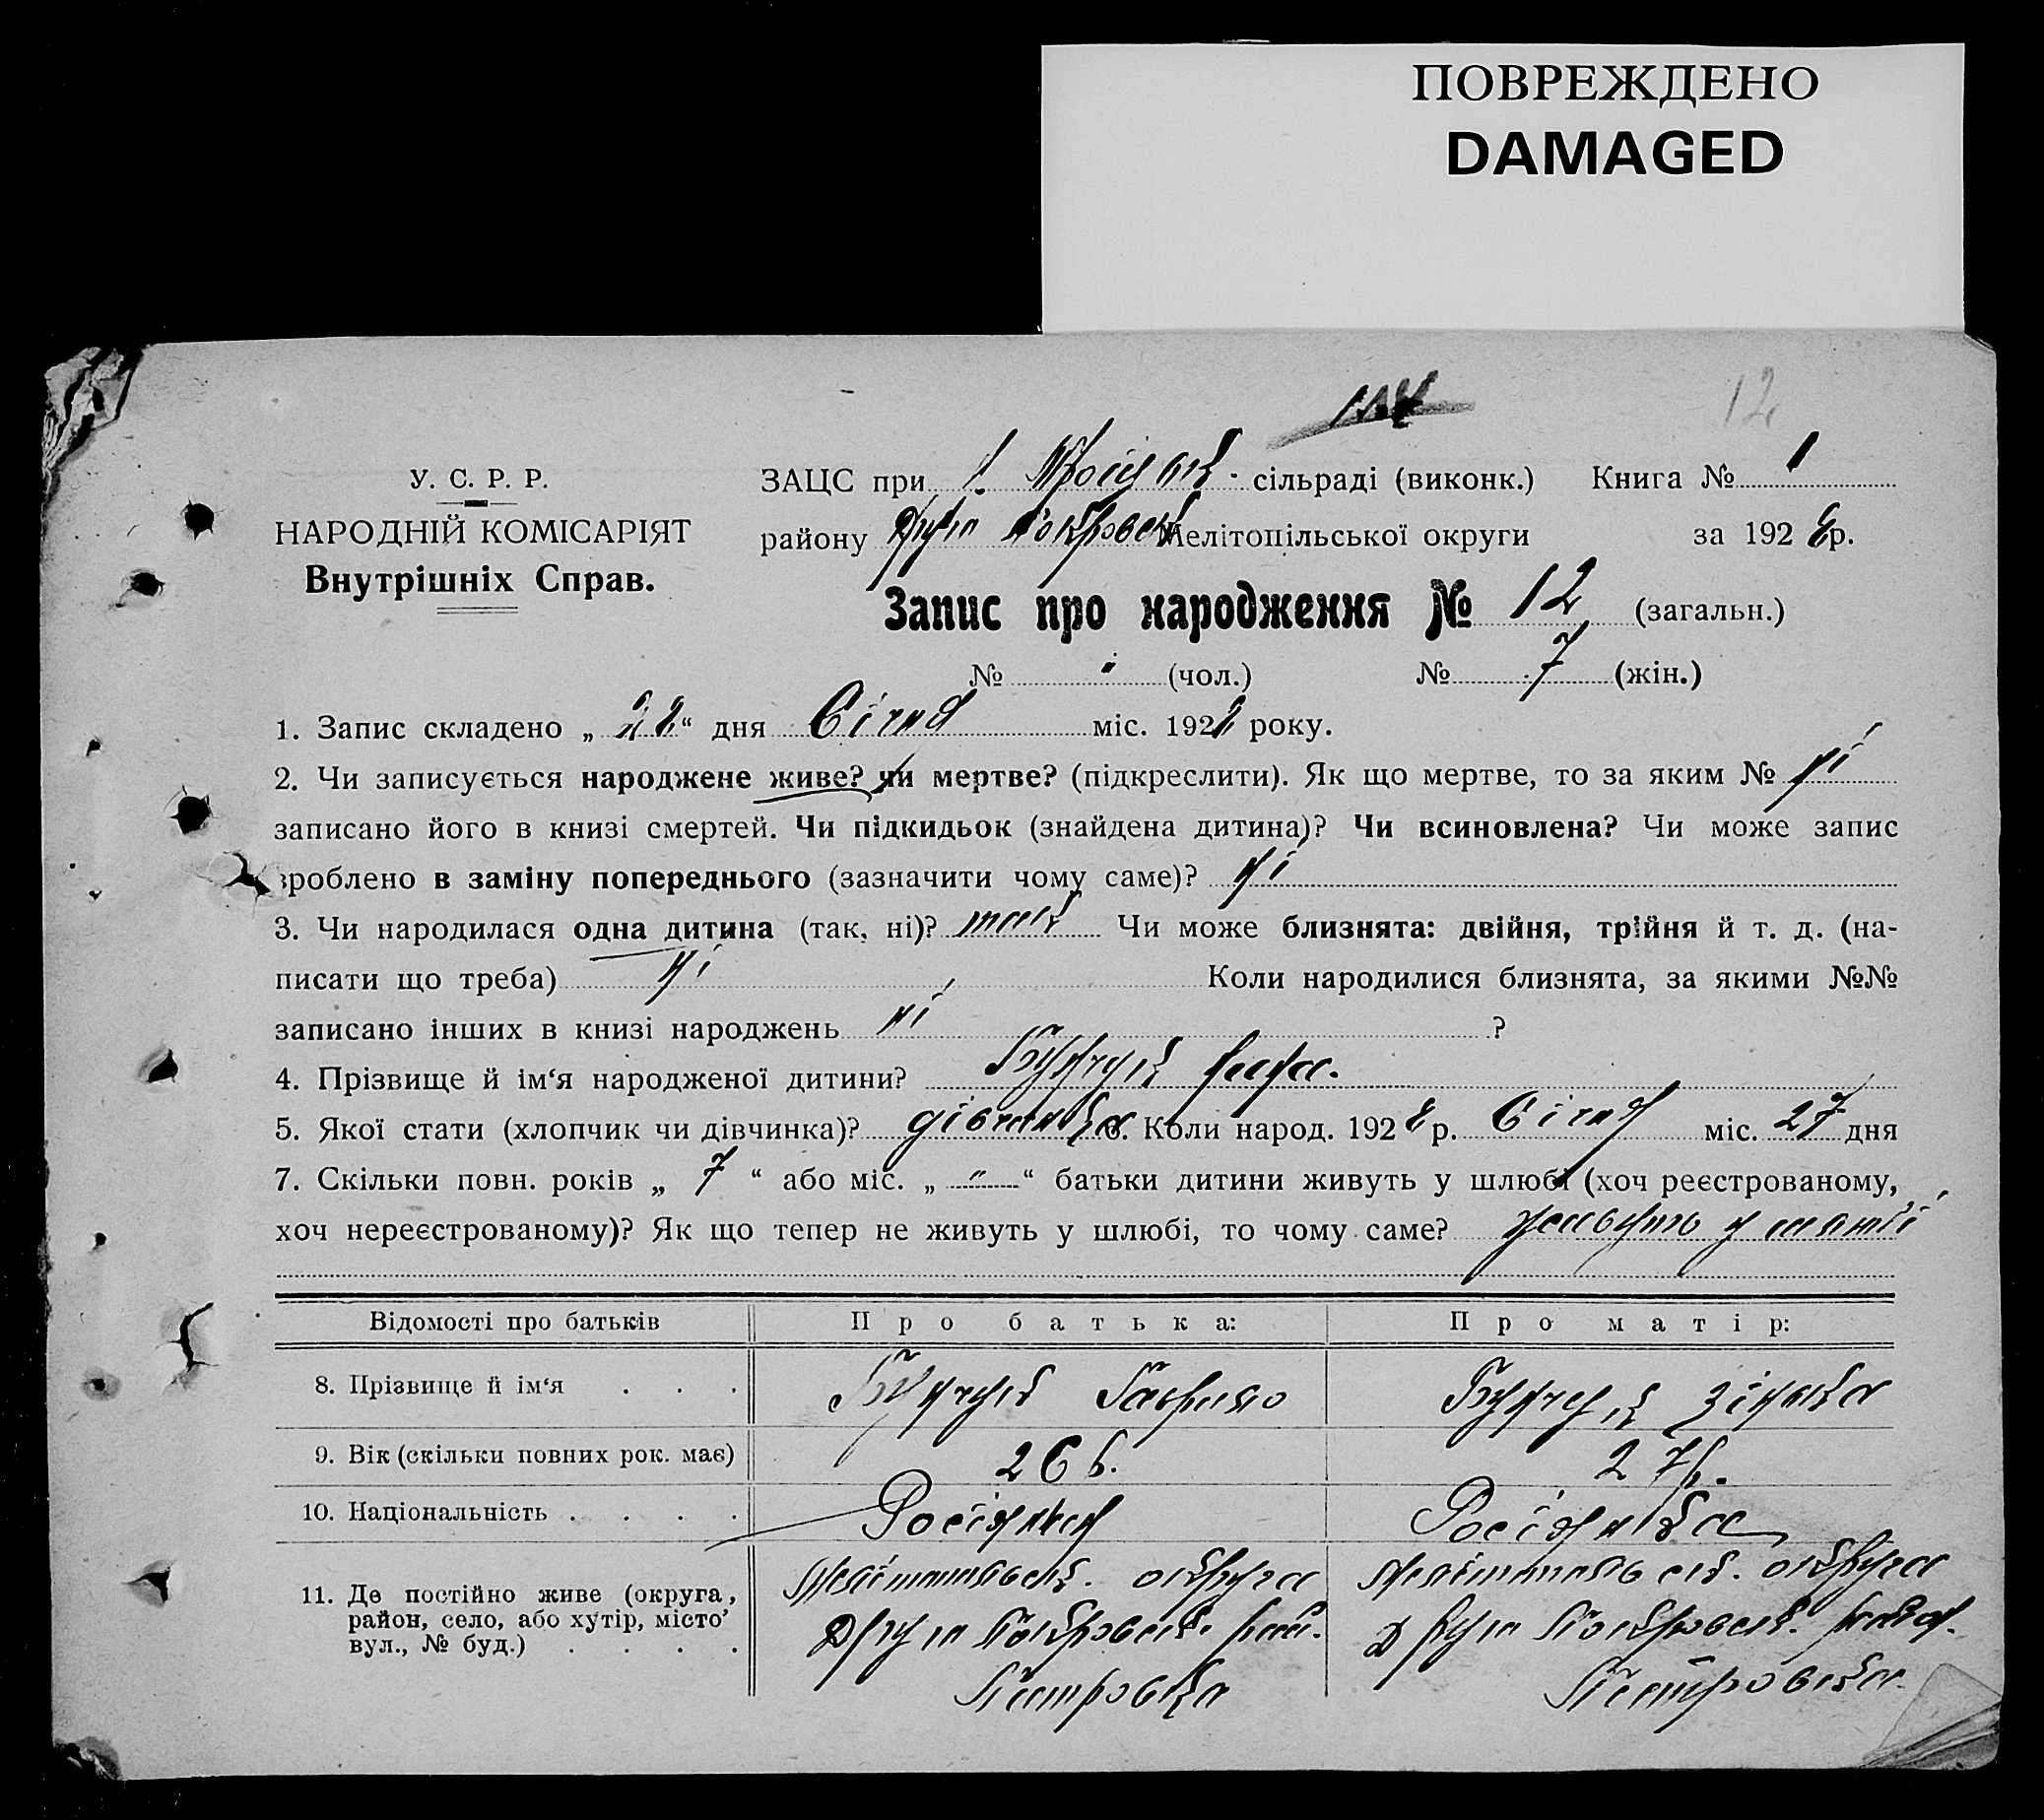 ПОВРЕЖДЕНО
DAMAGED
12
У. С. Р. Р.
НАРОДНІЙ КОМІСАРІЯТ
Внутрішніх Справ.
ЗАЦС при І Троіцьк. сільраді (виконк.) Книга № 1
району Друго Покровськ Мелітопільської округи за 1928 р.
Запис про народження № 12 (загальн.)
№ " (чол.) № 7 (жін.)
1. Запис складено „ 28 “ дня Січня міс. 1928 року.
2. Чи записується народжене живе? чи мертве? (підкреслити). Як що мертве, то за яким № ні
записано його в книзі смертей. Чи підкидьок (знайдена дитина)? Чи всиновлена? Чи може запис
зроблено в заміну попереднього (зазначити чому саме)? ні
3. Чи народилася одна дитина (так, ні)? так Чи може близнята: двійня, трійня й т. д. (на-
писати що треба) ні Коли народилися близнята, за якими №№
записано інших в книзі народжень ні ?
4. Прізвище й ім‘я народженої дитини?
5. Якої стати (хлопчик чи дівчинка)? дівчинка 6. Коли народ. 1928 р. Січня міс. 27 дня
7. Скільки повн. років „ 7 “ або міс. „ " “ батьки дитини живуть у шлюбі (хоч реєстрованому,
хоч нереєстрованому)? Як що тепер не живуть у шлюбі, то чому саме? живуть у
Відомості про батьків Про батька: Про матір:
8. Прізвище й ім‘я . . . Гаврило
9. Вік (скільки повних рок. має) 26 р. 27 р.
10. Національність . . . . Росіянин Росіянка
11. Де постійно живе (округа, район, село, або хутір, місто вул., № буд.) . . . .
Мелітопольськ. округа Мелітопольськ. округа
Друго Покровськ. рай. Друго Покровськ. район.